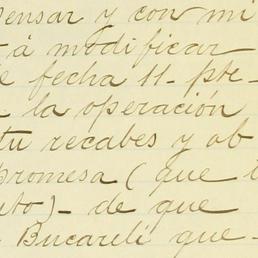 pensar y con mi
á modificar
e fecha 11- pte-
la operación
tu recabes y ob
promesa (que
uto)- de que
Bucareli que-